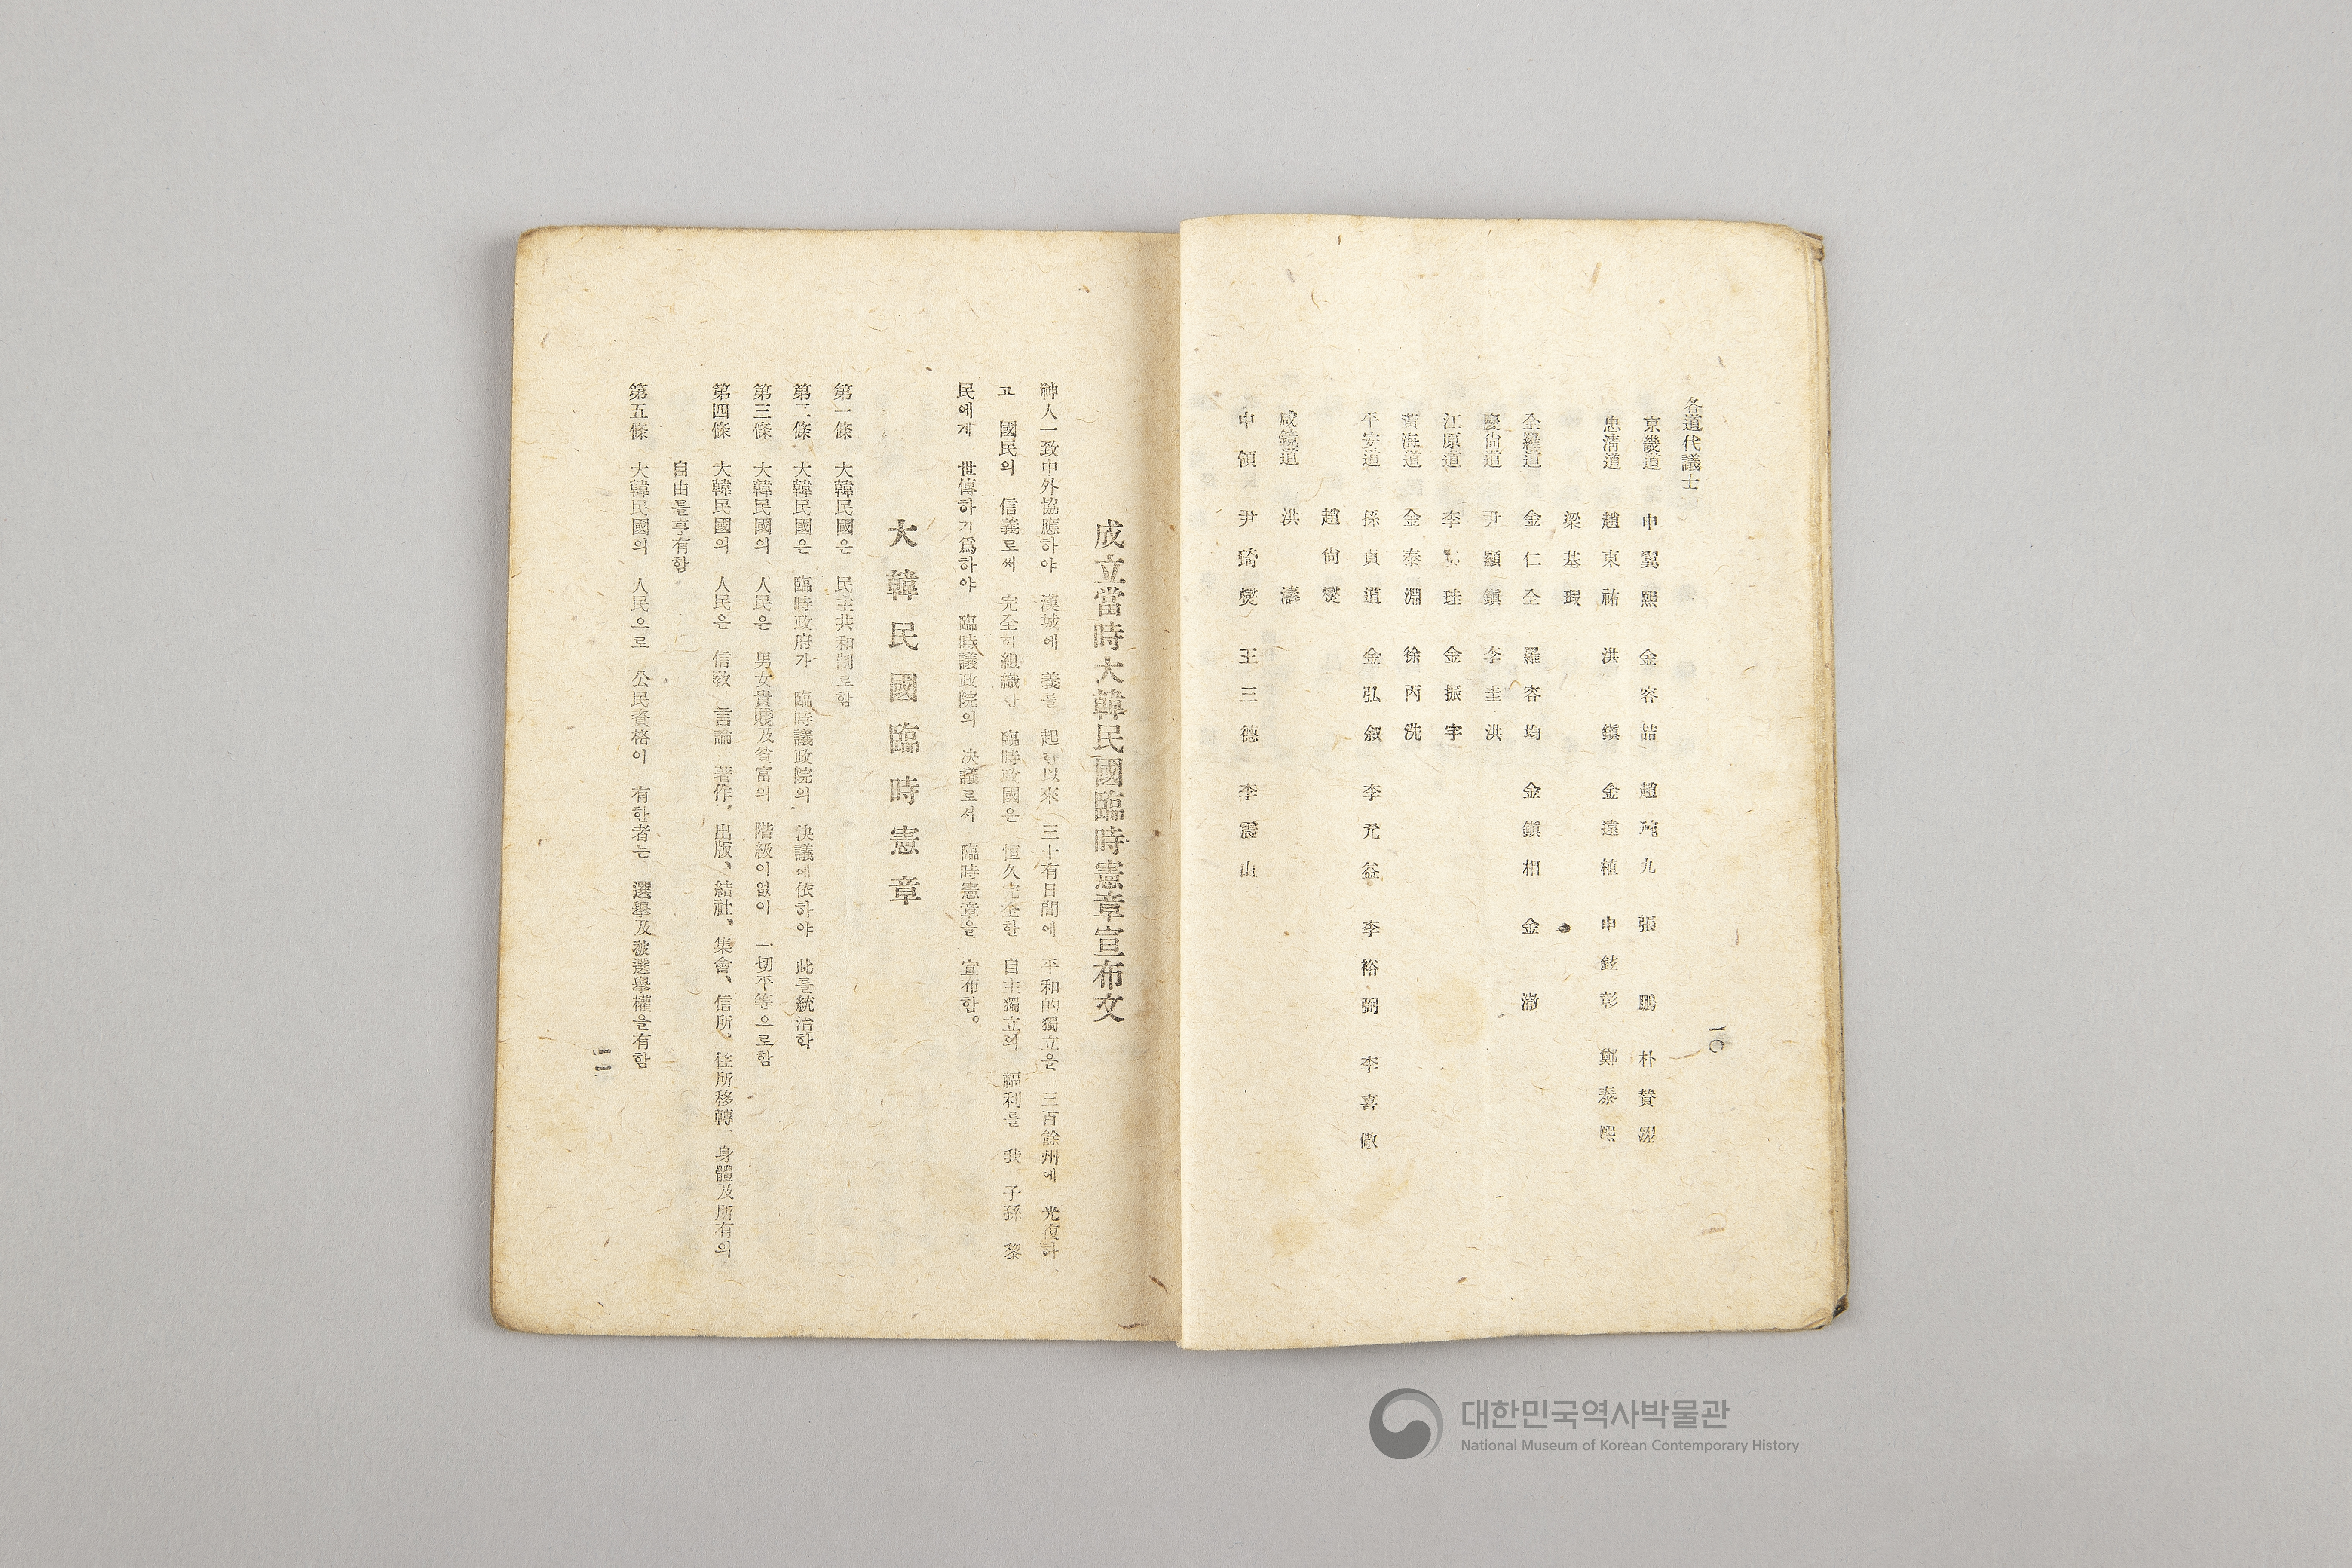 各道代議士
京畿道 申翼熙 金容喆 趙琬九 張鵬 朴賛翊
忠淸道 趙東祐 洪鎭 金遠植 申鉉彰 鄭泰熙
梁基瑕
全羅道 金仁全 羅容均 金鎭相 金澈
慶尙道 尹顯鎭 李圭洪
江原道 李 珪 金振宇
黃海道 金泰淵 徐丙浩
平安道 孫貞道 金弘叙 李元益 李裕弼 李喜儆
趙尙燮
咸鏡道 洪濤
中領 尹琦燮 王三德 李震山
一〇
成立當時大韓民國臨時憲章宣布文
神人一致中外協應하야 漢城에 義를 起한以來 三十有日間에 平和的獨立을 三百餘州에 光復하
고 國民의 信義로써 完全히組織한 臨時政國은 恒久完全한 自主獨立의 福利를 我 子孫 黎
民에게 世傳하기爲하야 臨時議政院의 決議로서 臨時憲章을 宣布함。
大韓民國臨時憲章
第一條 大韓民國은 民主共和制로함
第二條 大韓民國은 臨時政府가 臨時議政院의 決議에依하야 此를統治함
第三條 大韓民國의 人民은 男女貴賤及貧富의 階級이없이 一切平等으로함
第四條 大韓民國의 人民은 信敎、言論、著作、出版、結社、集會、信所、住所移轉、身體及所有의
自由를享有함
第五條 大韓民國의 人民으로 公民資格이 有한者는 選擧及被選擧權을有함
一一
대한민국역사박물관
National Museum of Korean Contemporary History